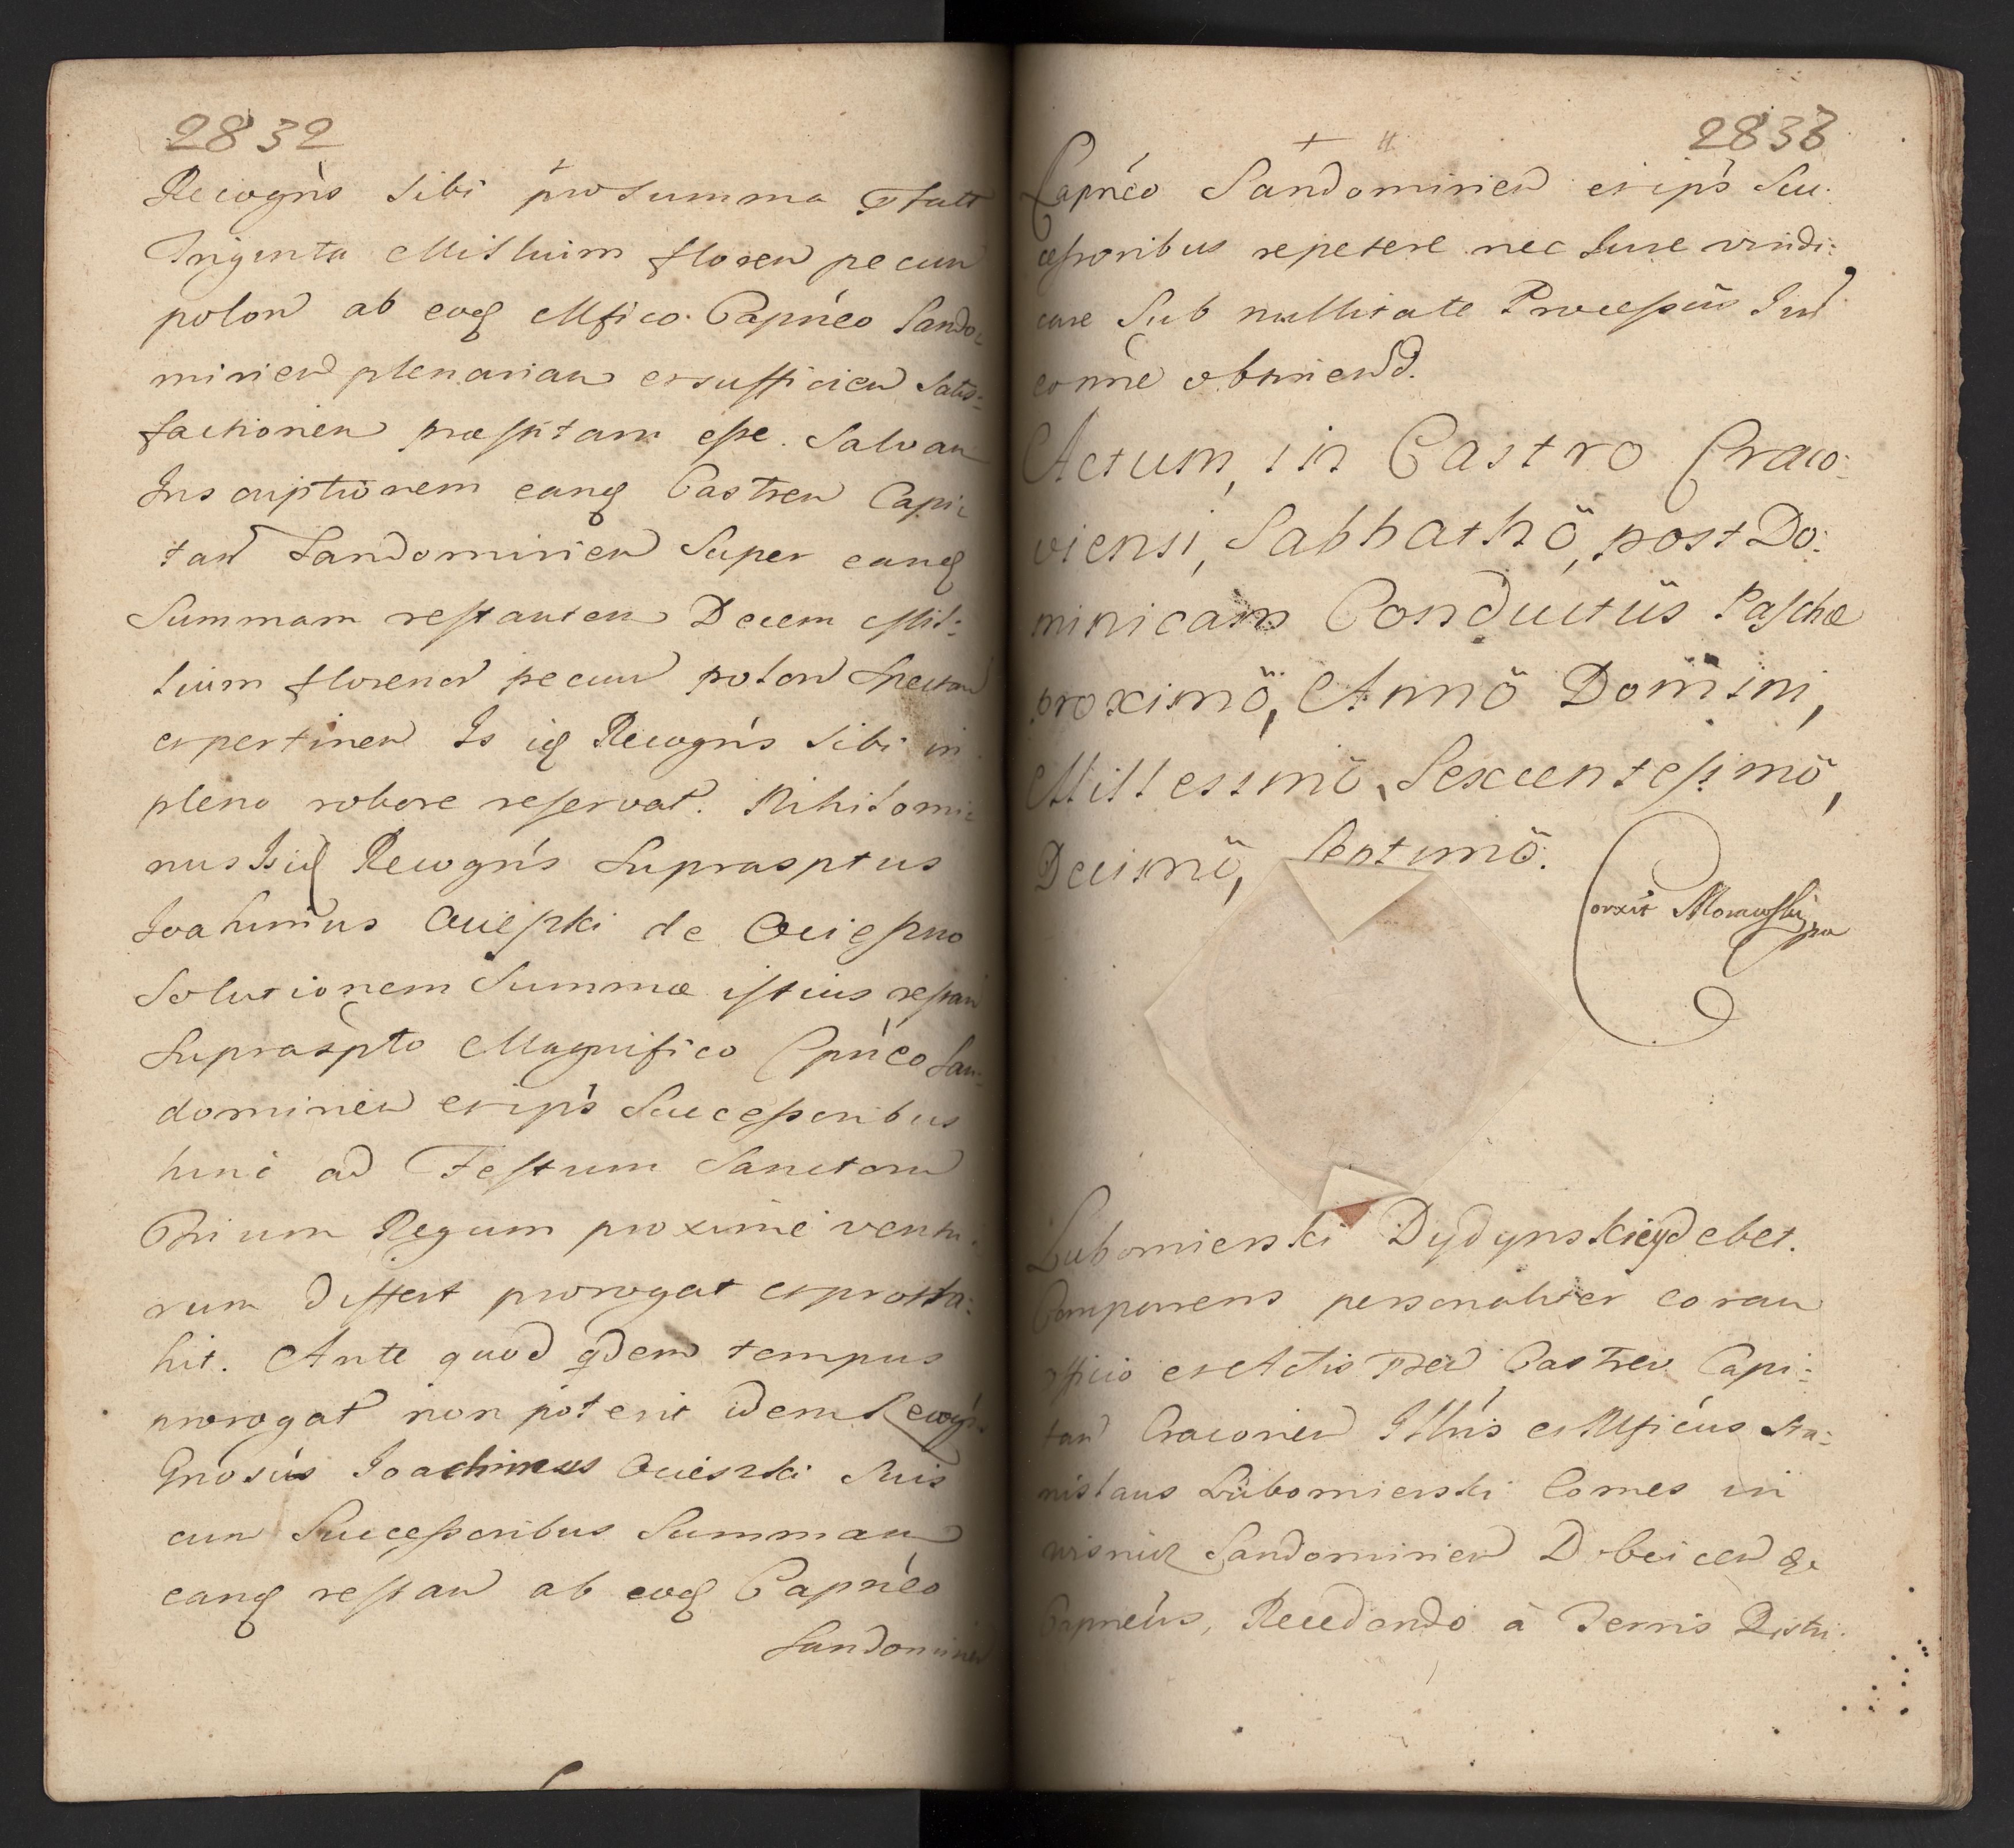 2832
Recogńs sibi pro summa
Triginta Millium floren pecun
polon ab eoq Mfico Capnéo Sando-
mirien plenariam et sufficien Satis:
factionem præstitam esse. Salvam
Inscriptionem eanq Castren Capi:
tan Sandomirien Super eanq
Summam restantem Decem Mil:
lium florenor pecun polon
et pertinen Is iq Recogńs sibi in
pleno robore reservat. Nihilomi:
nus Is iq Recogńs Suprasptus
Joahimus Ociesski de Ociessno
Solutionem Summæ istius restan
Suprasṕto Magnifico Cpnéo San:
domirien et ips Successoribus
hinc ad Festum Sanctoru
Trium Regum proxime ventu:
rum differt prorogat et protra:
hit. Ante quod qdem tempus
prorogat non poterit idem Recogńs
Gnosus Joachimus Ocieski Suis
cum Successoribus Summam
eanq restan ab eoq Capnéo
Sandomirien
2833
Capnéo Sandomirien et ips Suc:
cessoribus repetere nec Jure vindi:
care Sub nullitate Processus Jur
eomne obtinend.
Actum, in Castro Craco:
viensi, Sabbathö, post Do:
minicam Conductüs Paschæ
proximö, Annö Domini,
Millessimö, Sexcentesimö,
Decimö, Septimö.
Corxit Morawski
Lubomierski Dydynskiey debet.
Comparens personaliter coram
officio et Actis Castren Capi:
tan Cracovien Illrís et Mficus Sta:
nislaus Lubomierski Comes in
wisnicz Sandomirien Dobcicen &
Capnéus, Recedendo à Terris Distri: